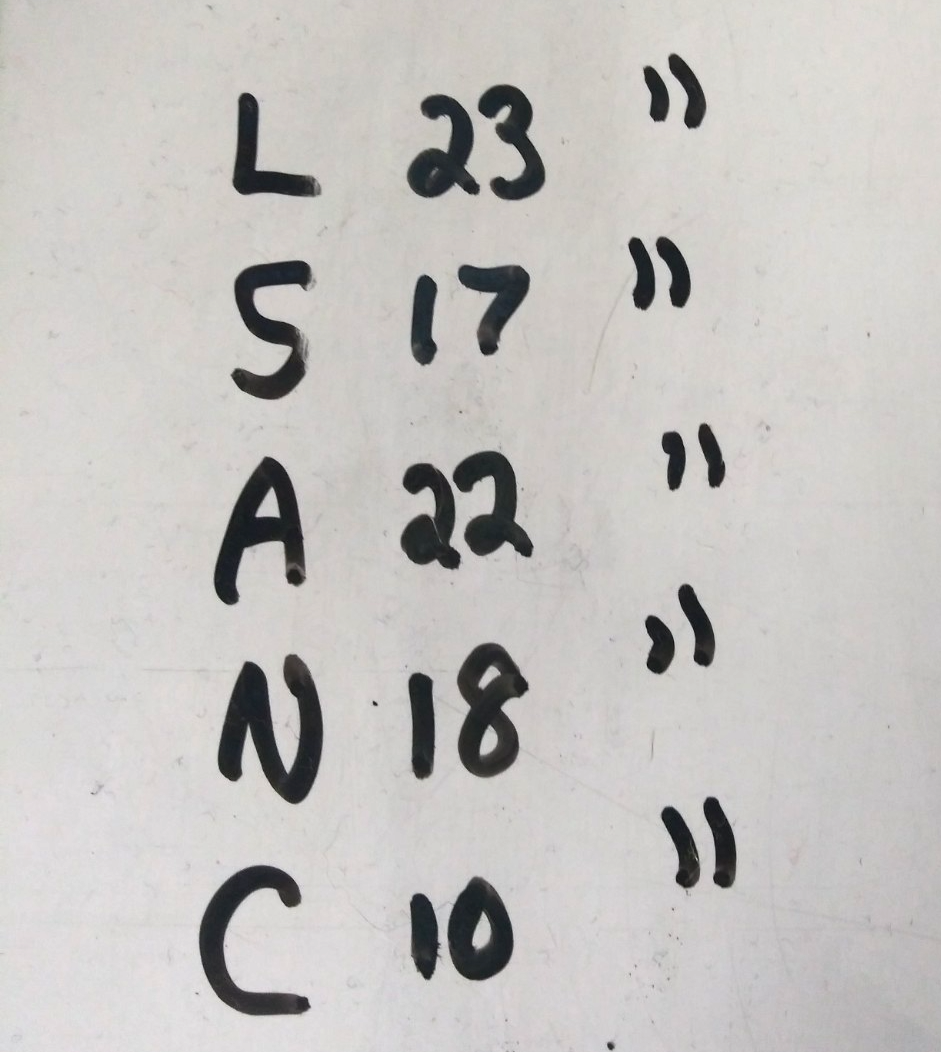 L 23 "
S 17 "
A 22 "
N 18 "
C 10 "